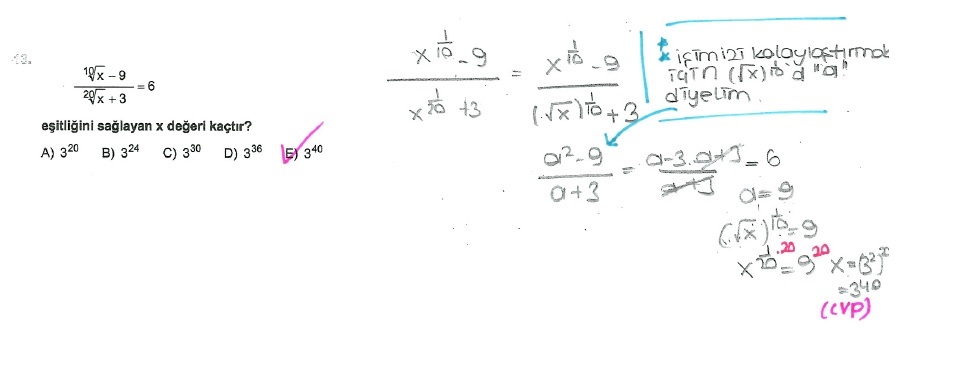 13.
¹⁰√x − 9
²⁰√x + 3
= 6
eşitliğini sağlayan x değeri kaçtır?
A) 3²⁰ B) 3²⁴ C) 3³⁰ D) 3³⁶ E) 3⁴⁰
x^(1/10) - 9 = x^(1/10) - 9
x^(1/20) + 3 (√x)^(1/10) + 3
* işimizi kolaylaştırmak
için (√x)^(1/10)'a "a"
diyelim.
a² - 9 = a-3. a+3 = 6
a + 3 a+3
a = 9
(√x)^(1/10) = 9
x^(1/20 .20) = 9^20 x = (3²)
= 3^40
(CVP)